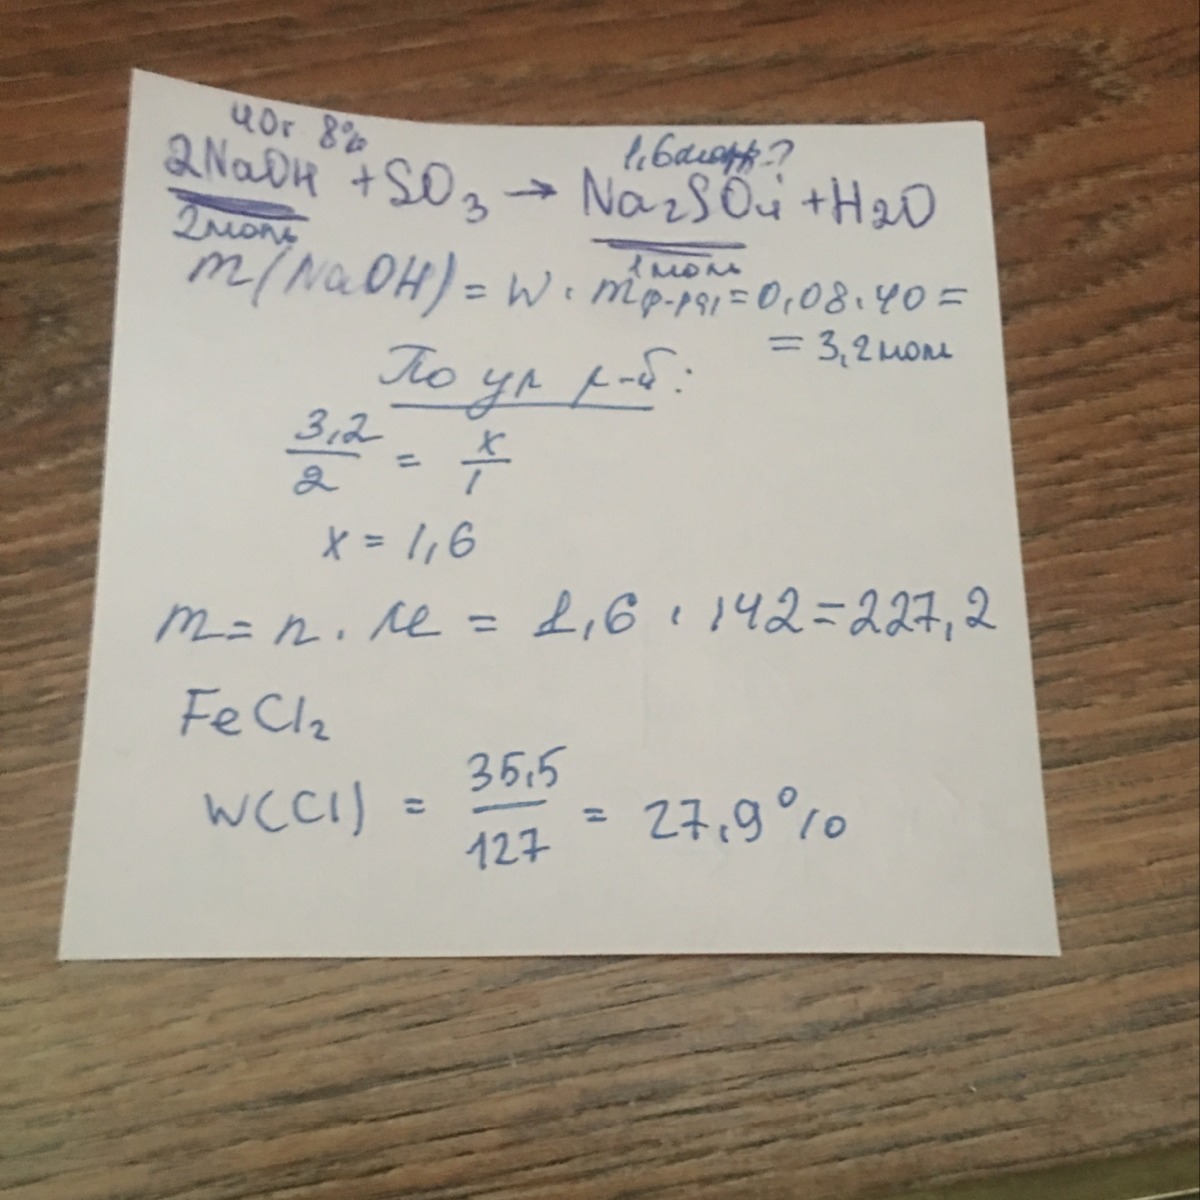 40г 8%
1,6моль ?
2NaOH + SO3 → Na2SO4 + H2O
2моль
1моль
m(NaOH) = W · mр-ра, = 0,08 · 40 =
= 3,2 моль
По ур р-й:
3,2/2 = x/1
x = 1,6
m = n · M = 1,6 · 142 = 227,2
FeCl2
W(Cl) = 35,5/127 = 27,9%